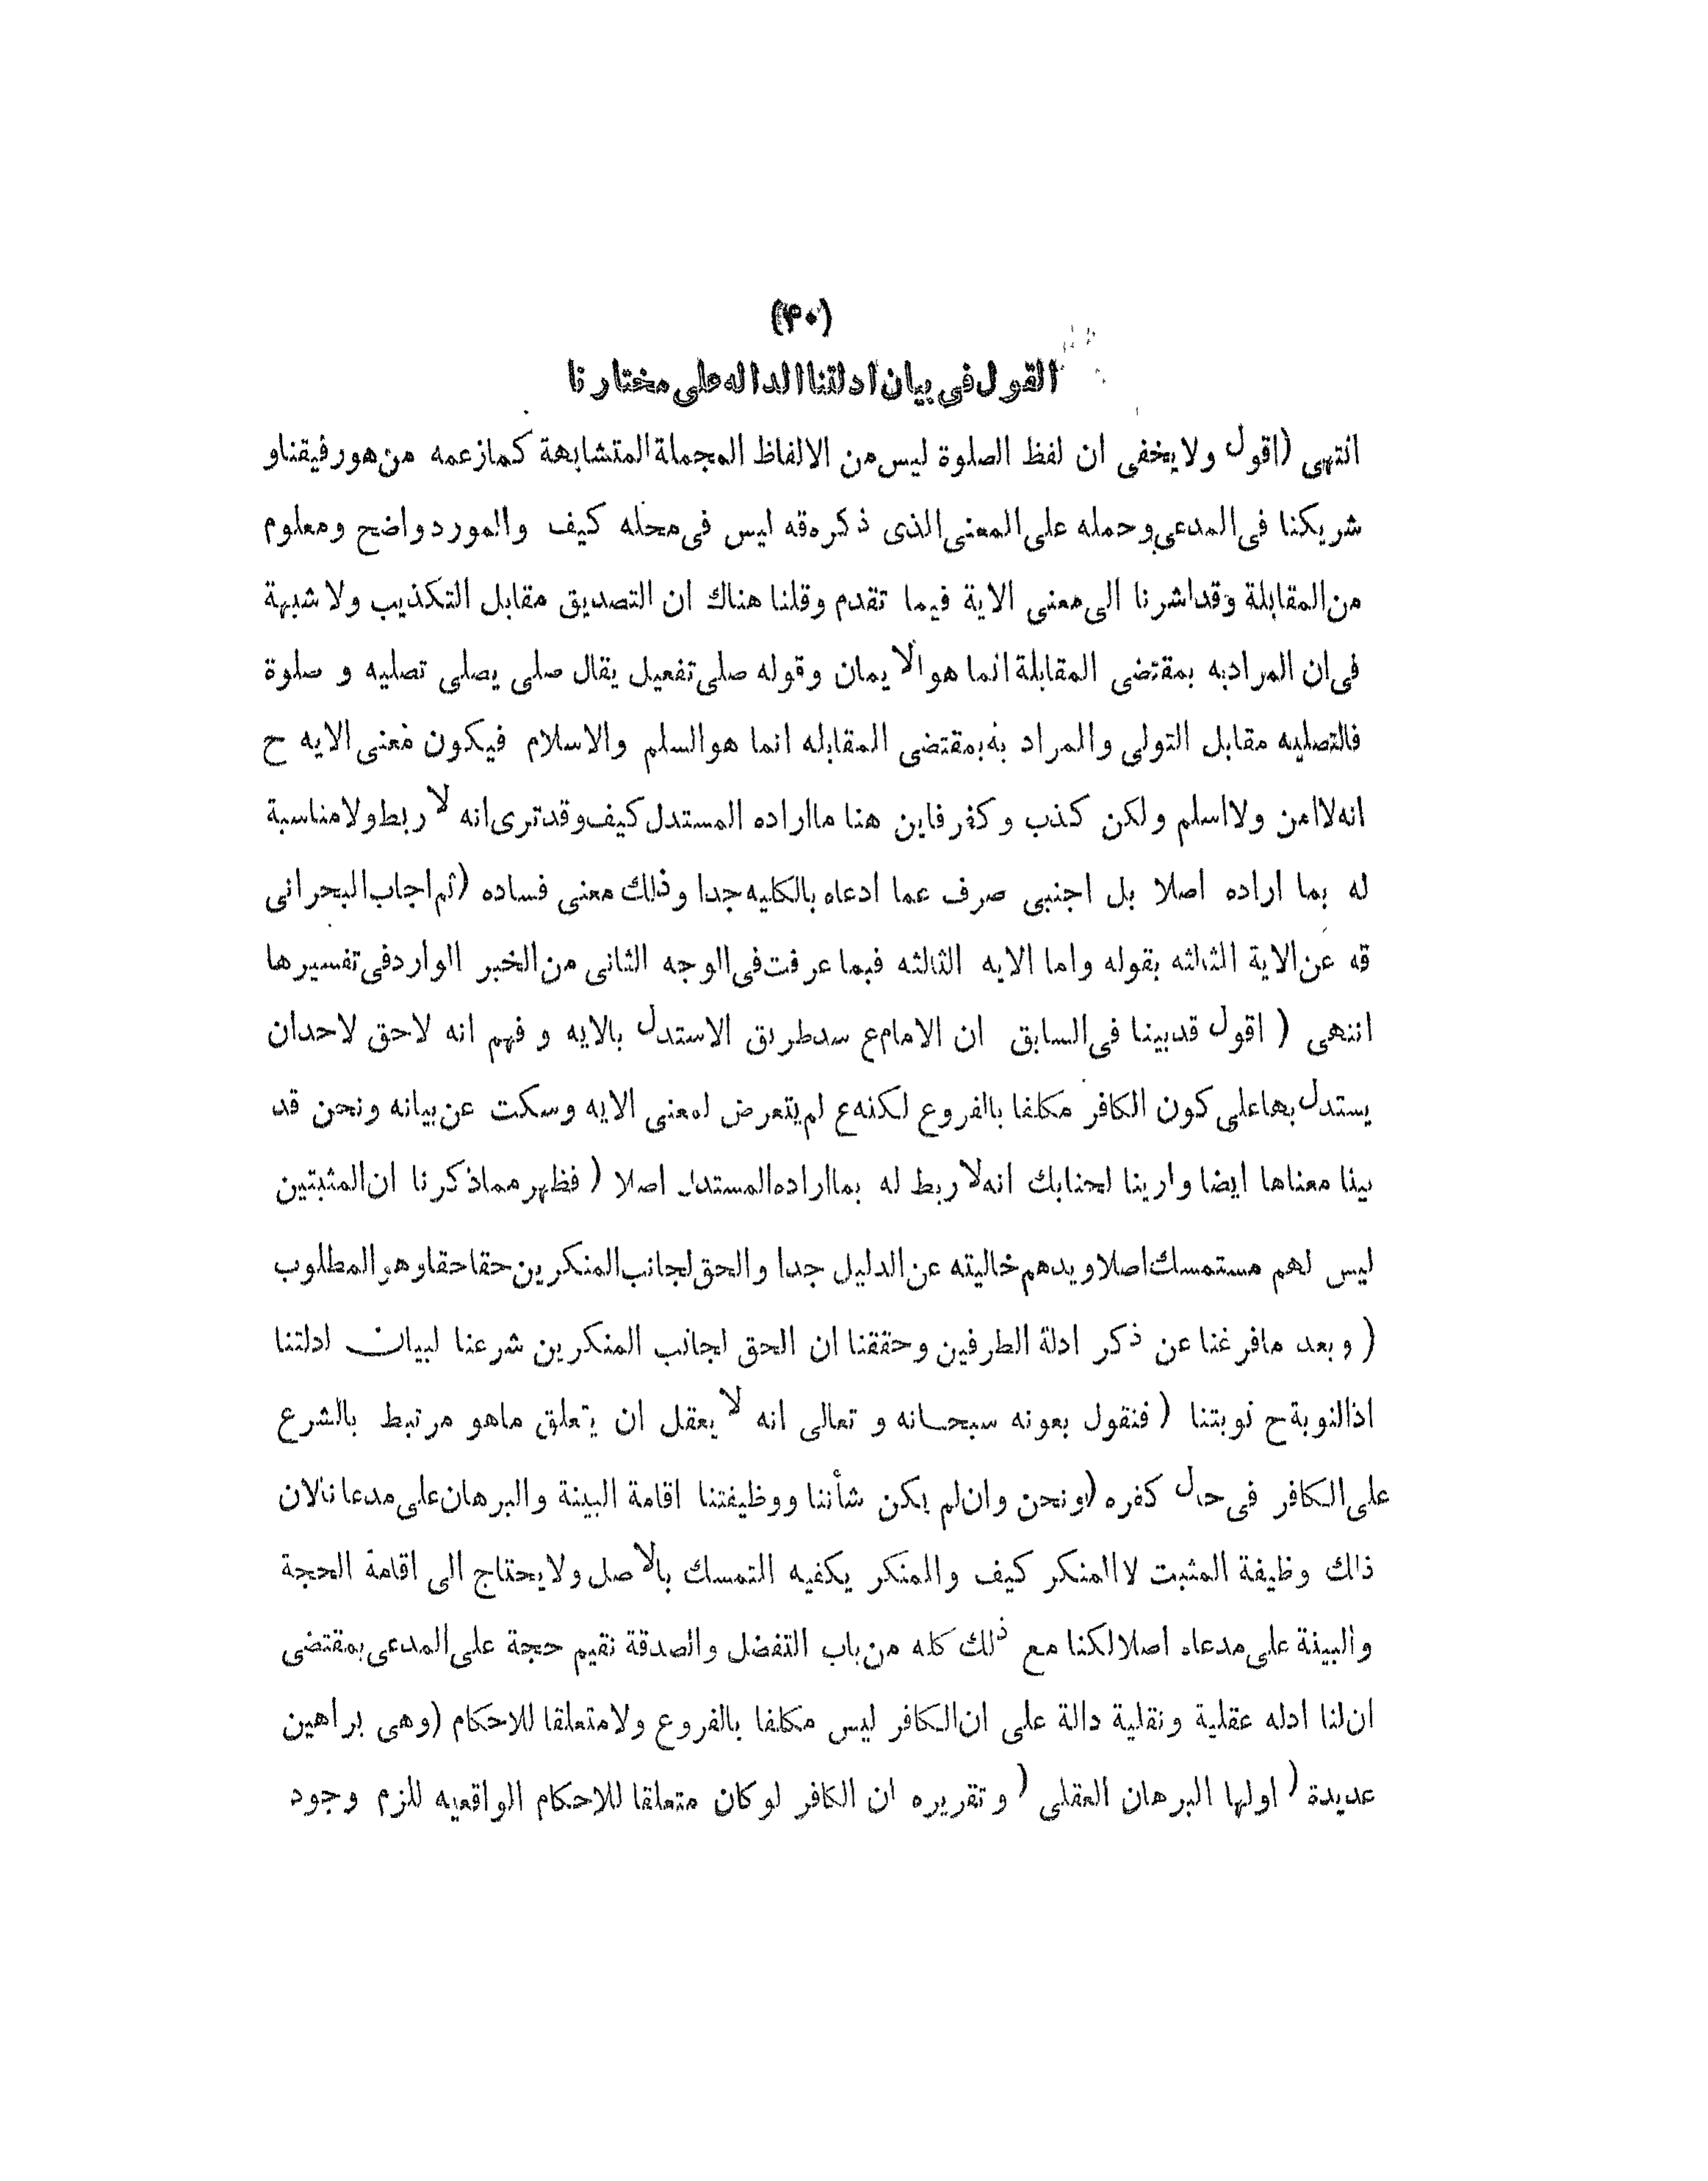 (۴۰)
القول فی بیان ادلتنا الداله علی مختارنا
انتهی (اقول ولا یخفی ان لفظ الصلوة لیس من الالفاظ المجملة المتشابهة کمازعمه من هو رفیقنا و
شریکنا فی المدعی وحمله علی المعنی الذی ذکره قه لیس فی محله کیف والمورد واضح ومعلوم
من المقابلة وقد اشرنا الی معنی الایة فیما تقدم وقلنا هناك ان التصدیق مقابل التکذیب ولا شبهة
فی ان المراد به بمقتضی المقابلة انما هو الایمان وقوله صلی تفعیل یقال صلی یصلی تصلیه و صلوة
فالتصلیه مقابل التولی والمراد به بمقتضی المقابله انما هو السلم والاسلام فیکون معنی الایه ح
انه لا امن ولا اسلم ولکن کذب و کفر فاین هنا ما اراده المستدل کیف وقد تری انه لا ربط ولا مناسبة
له بما اراده اصلا بل اجنبی صرف عما ادعاه بالکلیه جدا وذلك معنی فساده (ثم اجاب البحرانی
قه عن الایة الثالثه بقوله واما الایه الثالثه فبما عرفت فی الوجه الثانی من الخبر الوارد فی تفسیرها
انتهی ( اقول قد بینا فی السابق ان الامام ع سد طریق الاستدل بالایه و فهم انه لاحق لاحد ان
یستدل بها علی کون الکافر مکلفا بالفروع لکنه ع لم یتعرض لمعنی الایه وسکت عن بیانه ونحن قد
بینا معناها ایضا وارینا لجنابك انه لا ربط له بما اراده المستدل اصلا ( فظهر مما ذکرنا ان المثبتین
لیس لهم مستمسك اصلا ویدهم خالیته عن الدلیل جدا والحق لجانب المنکرین حقا حقا وهو المطلوب
( و بعد ما فرغنا عن ذکر ادلة الطرفین وحققنا ان الحق لجانب المنکرین شرعنا لبیان ادلتنا
اذ النوبة ح نوبتنا ( فنقول بعونه سبحانه و تعالی انه لا یعقل ان یتعلق ماهو مرتبط بالشرع
علی الکافر فی حال کفره (ونحن وان لم یکن شأننا ووظیفتنا اقامة البینة والبرهان علی مدعانا لان
ذلك وظیفة المثبت لا المنکر کیف والمنکر یکفیه التمسك بالاصل ولا یحتاج الی اقامة الحجة
والبینة علی مدعاه اصلا لکنا مع ذلك کله من باب التفضل والصدقة نقیم حجة علی المدعی بمقتضی
ان لنا ادله عقلیة ونقلیة دالة علی ان الکافر لیس مکلفا بالفروع ولا متعلقا للاحکام (وهی براهین
عدیدة ( اولها البرهان العقلی ( و تقریره ان الکافر لو کان متعلقا للاحکام الواقعیه للزم وجود